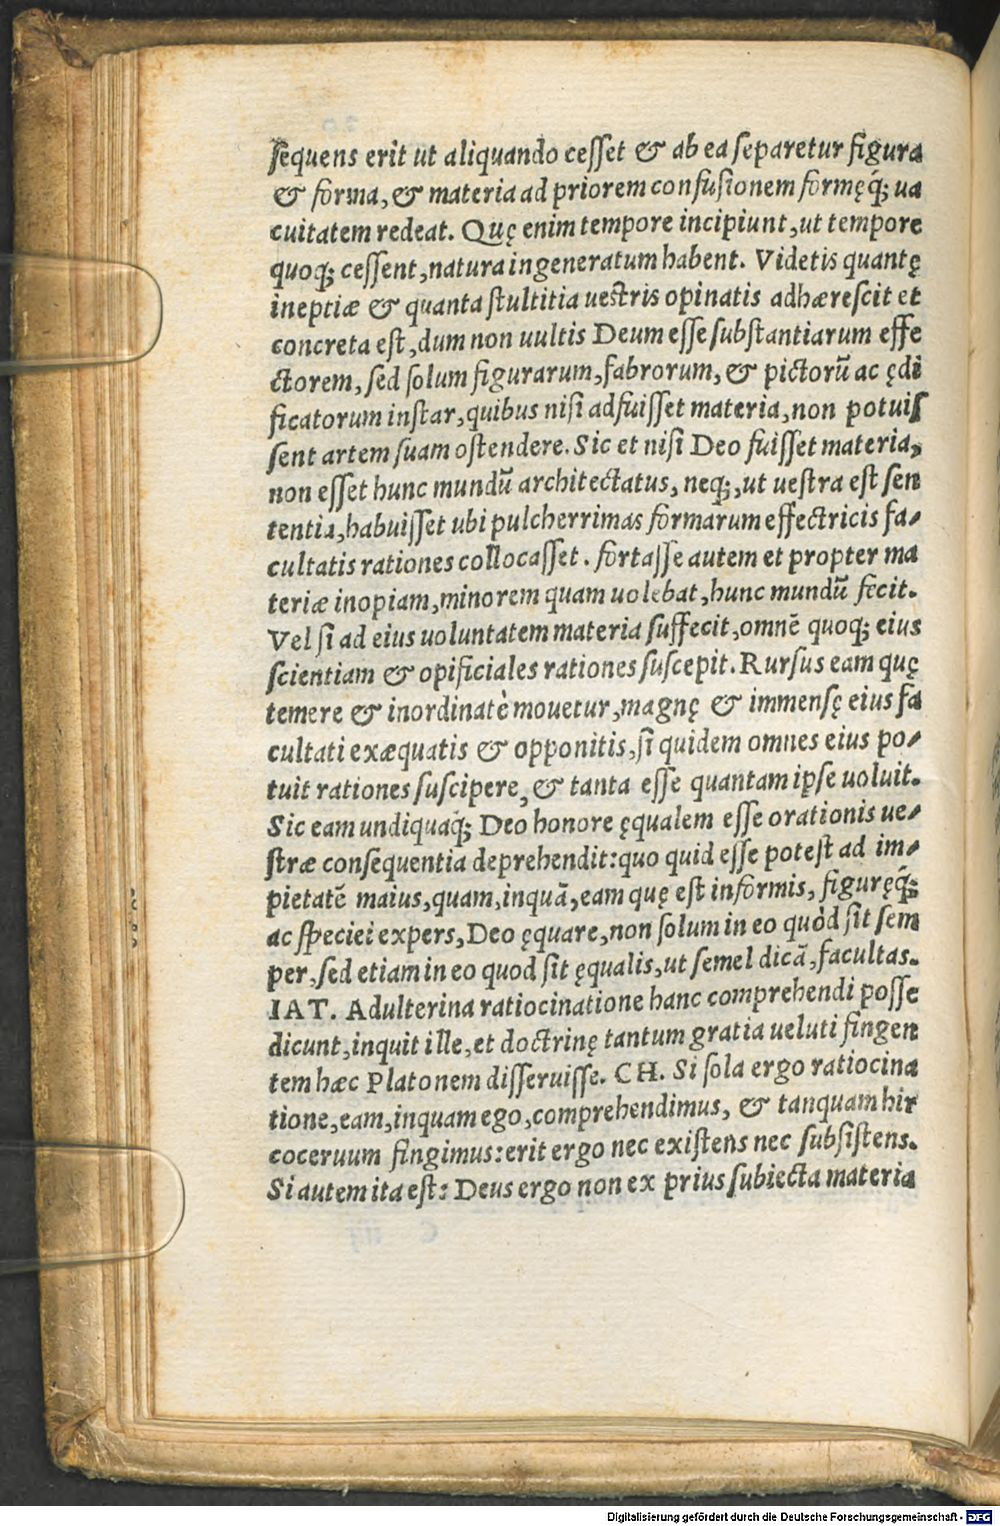 ſequens erit ut aliquando ceſſet & ab ea ſeparetur figura
& forma, & materia ad priorem confuſionem formęq́; ua
cuitatem redeat. Quę enim tempore incipiunt, ut tempore
quoq; ceſſent, natura ingeneratum habent. Videtis quantę
ineptiæ & quanta ſtultitia ueſtris opinatis adhæreſcit et
concreta eſt, dum non uultis Deum eſſe ſubſtantiarum effe
ctorem, ſed ſolum figurarum, fabrorum, & pictorū ac ędi
ficatorum inſtar, quibus niſi adfuiſſet materia, non potuiſ
ſent artem ſuam oſtendere. Sic et niſi Deo fuiſſet materia,
non eſſet hunc mundū architectatus, neq;, ut ueſtra eſt ſen
tentia, habuiſſet ubi pulcherrimas formarum effectricis fa-
cultatis rationes collocaſſet. fortaſſe autem et propter ma
teriæ inopiam, minorem quam uolebat, hunc mundū fecit.
Vel ſi ad eius uoluntatem materia ſuffecit, omnē quoq; eius
ſcientiam & opificiales rationes ſuſcepit. Rurſus eam quę
temere & inordinatè mouetur, magnę & immenſę eius fa
cultati exæquatis & opponitis, ſi quidem omnes eius po-
tuit rationes ſuſcipere, & tanta eſſe quantam ipſe uoluit.
Sic eam undiquaq́; Deo honore ęqualem eſſe orationis ue-
ſtræ conſequentia deprehendit: quo quid eſſe poteſt ad im-
pietatē maius, quam, inquā, eam quę eſt informis, figuręq́;
ac ſpeciei expers, Deo ęquare, non ſolum in eo quòd ſit ſem
per, ſed etiam in eo quod ſit ęqualis, ut ſemel dicā, facultas.
IAT. Adulterina ratiocinatione hanc comprehendi poſſe
dicunt, inquit ille, et doctrinę tantum gratia ueluti fingen
tem hæc Platonem diſſeruiſſe. CH. Si ſola ergo ratiocina
tione, eam, inquam ego, comprehendimus, & tanquam hir
coceruum fingimus: erit ergo nec exiſtens nec ſubſiſtens.
Si autem ita eſt: Deus ergo non ex prius ſubiecta materia
Digitalisierung gefördert durch die Deutsche Forschungsgemeinschaft - DFG